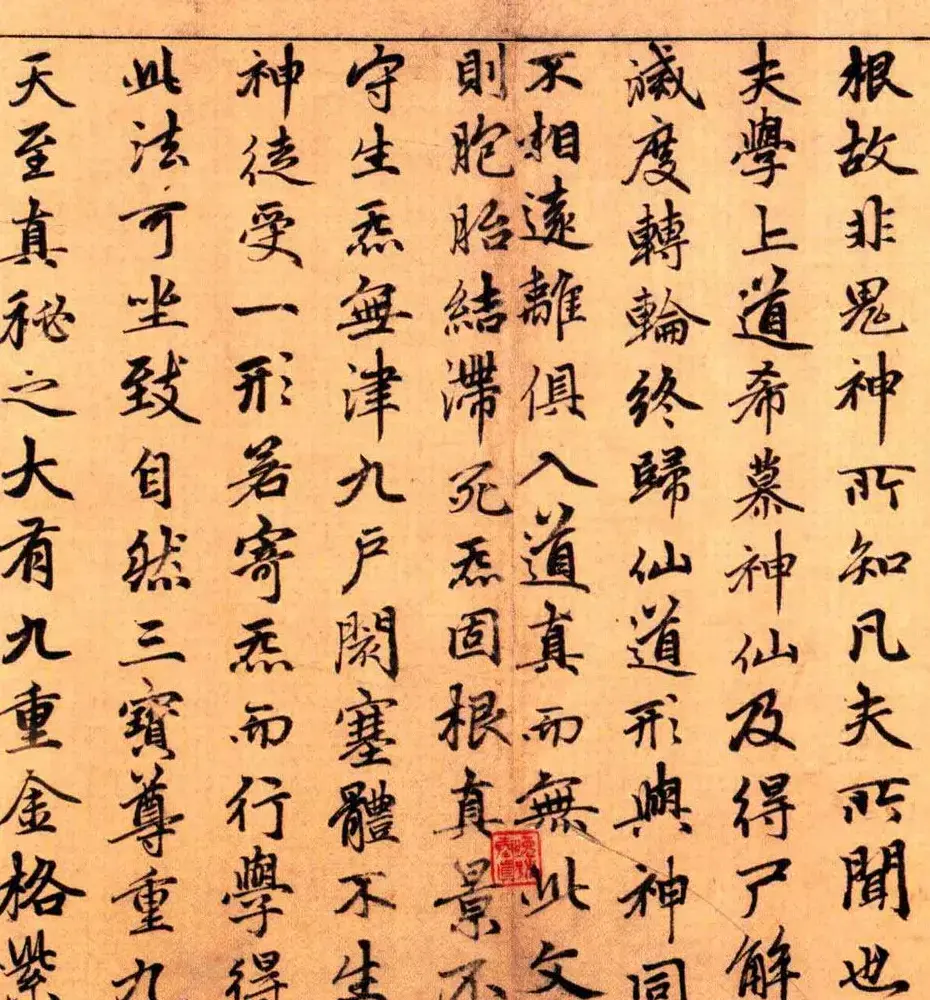 根故非鬼神所知凡夫所聞也
夫學上道希慕神仙及得尸解
滅度轉輪終歸仙道形與神同
不相遠離俱入道真而無此文
則胞胎結滯死炁固根真景不
守生炁無津九戶閡塞體不生
神徒受一形若寄炁而行學得
此法可坐致自然三寶尊重九
天至真秘之大有九重金格紫